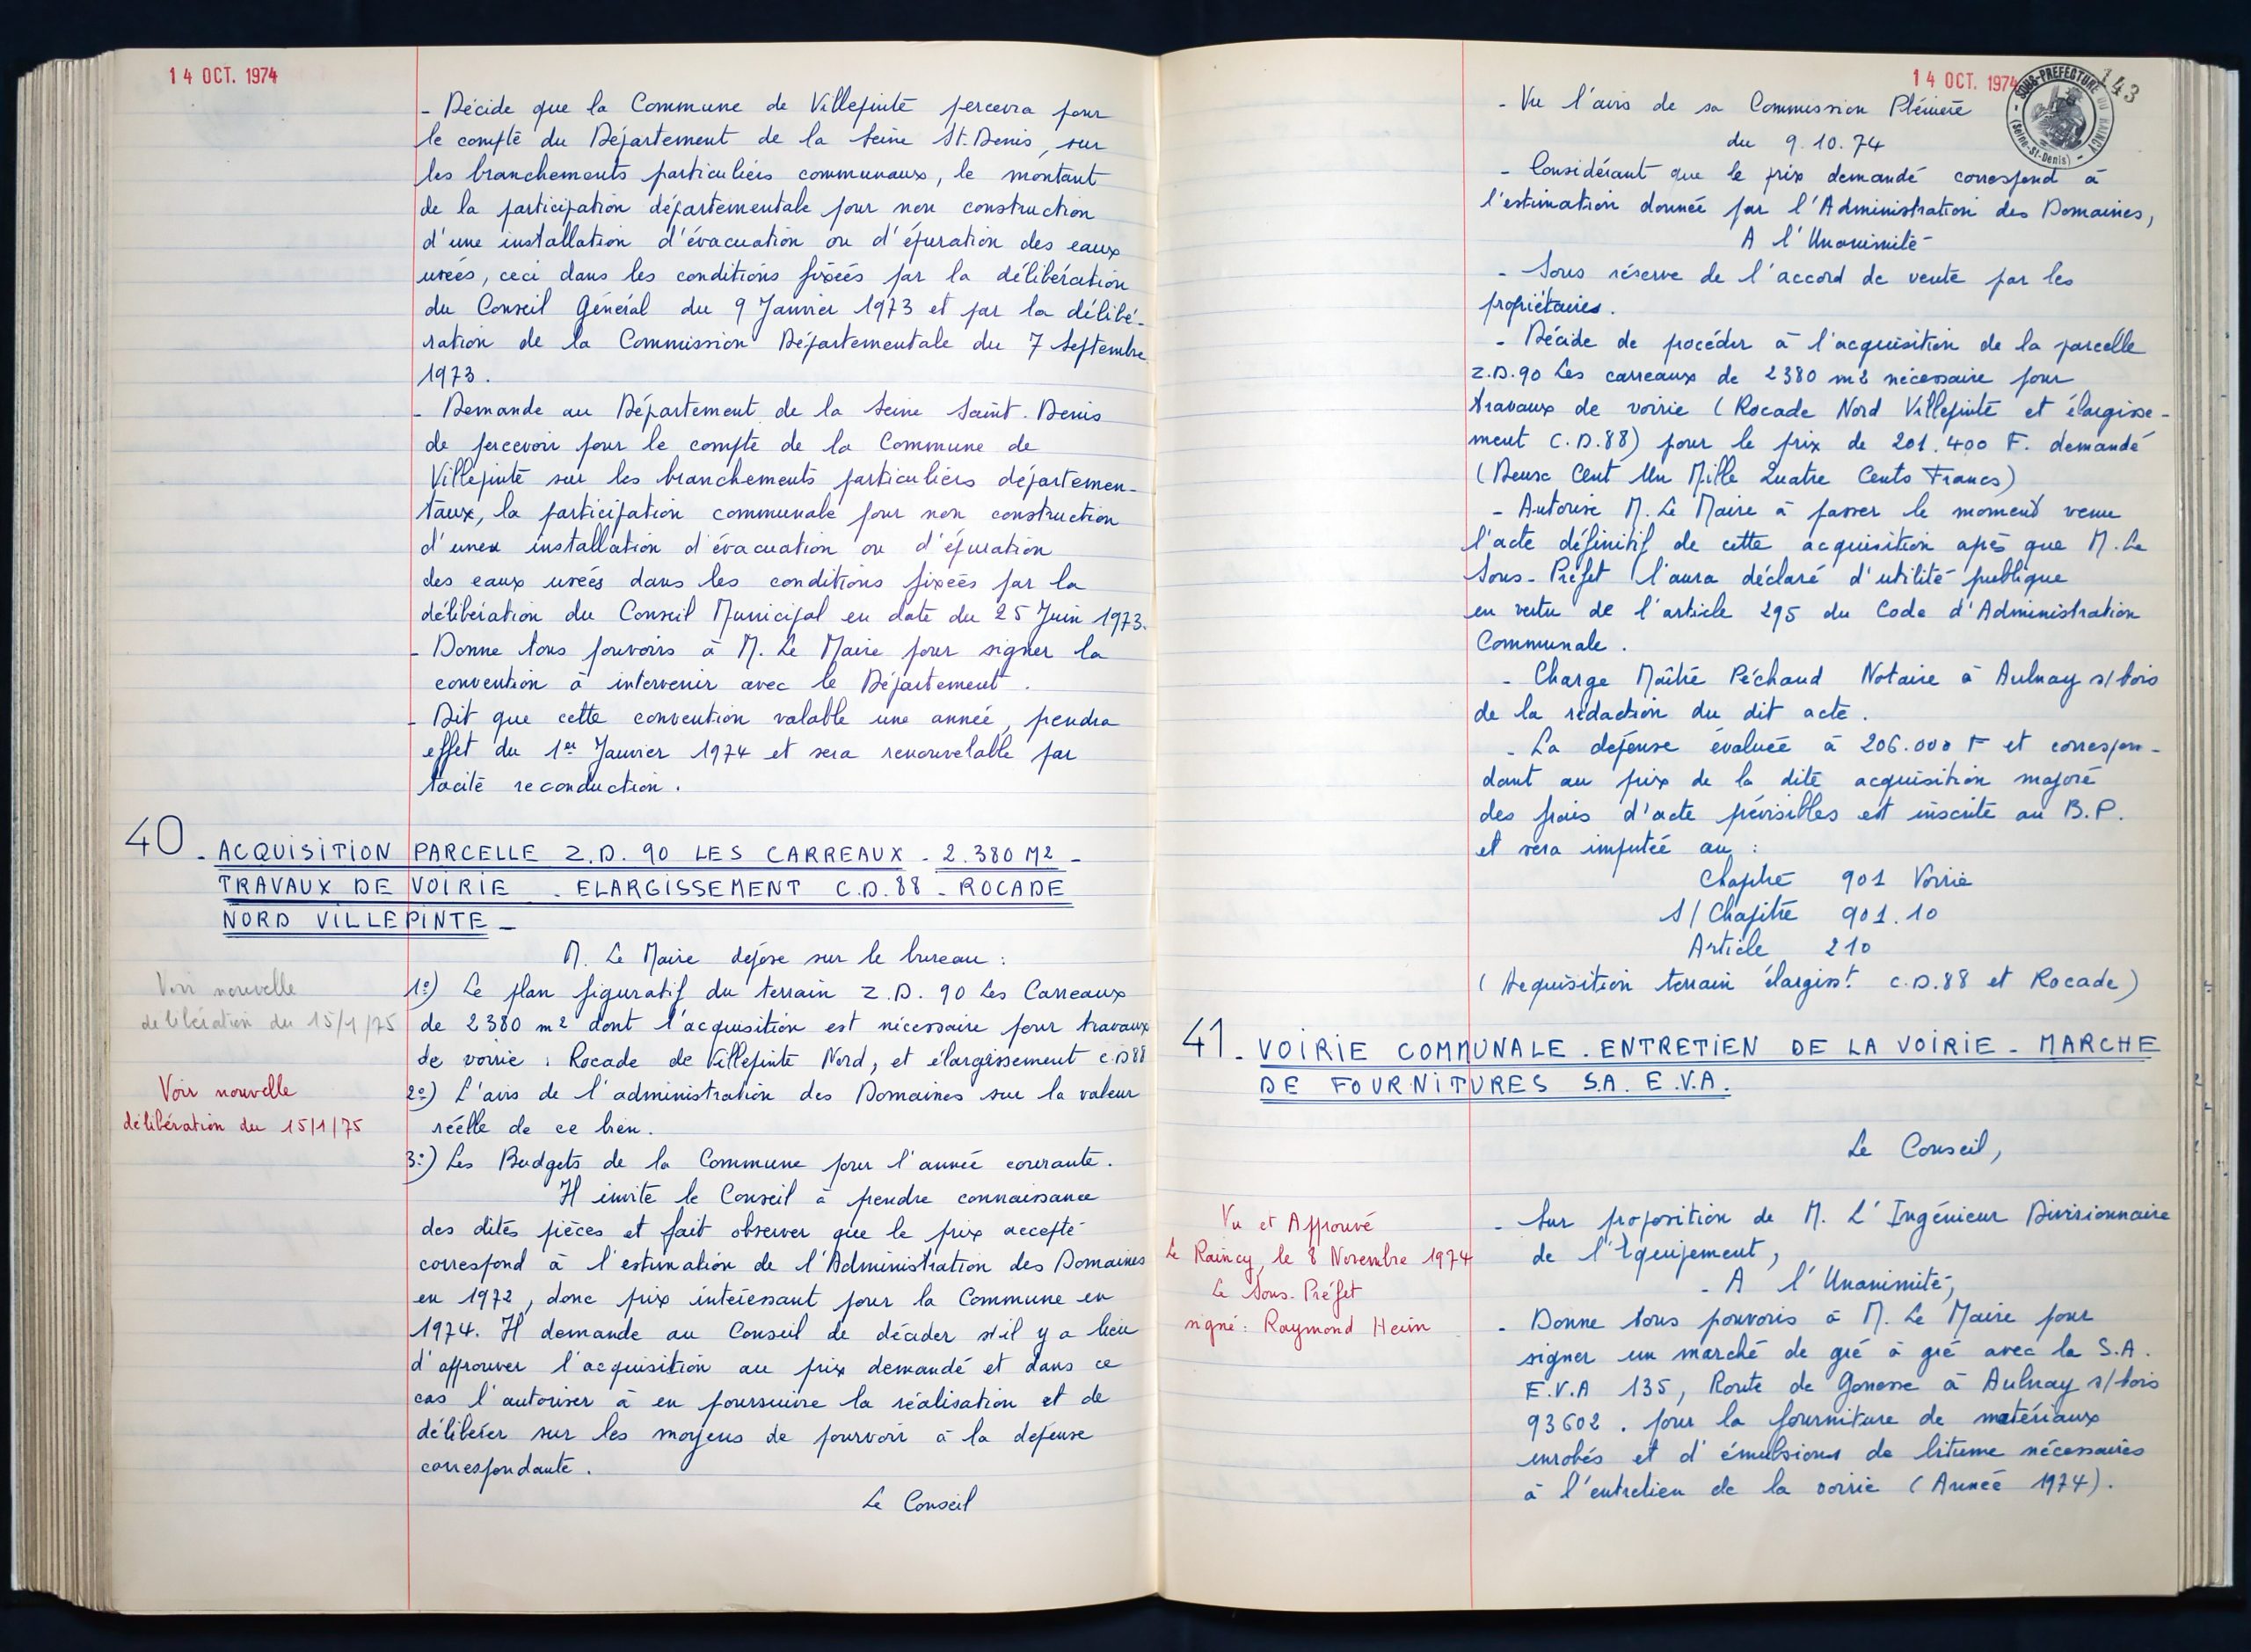 14 OCT. 1974
- Décide que la Commune de Villepinte percevra pour
le compte du Département de la Seine St. Denis, sur
les branchements particuliers communaux, le montant
de la participation départementale pour non construction
d'une installation d'évacuation ou d'épuration des eaux
usées, ceci dans les conditions fixées par la délibération
du Conseil Général du 9 Janvier 1973 et par la délibé-
ration de la Commission Départementale du 7 Septembre
1973.
- Demande au Département de la Seine Saint-Denis
de percevoir pour le compte de la Commune de
Villepinte sur les branchements particuliers départemen-
taux, la participation communale pour non construction
d'une installation d'évacuation ou d'épuration
des eaux usées dans les conditions fixées par la
délibération du Conseil Municipal en date du 25 Juin 1973.
- Donne tous pouvoirs à M. Le Maire pour signer la
convention à intervenir avec le Département.
- Dit que cette convention valable une année, prendra
effet du 1er Janvier 1974 et sera renouvelable par
tacite reconduction.
40 - ACQUISITION PARCELLE Z.D. 90 LES CARREAUX - 2.380 M2 -
TRAVAUX DE VOIRIE - ELARGISSEMENT C.D.88 - ROCADE
NORD VILLEPINTE -
M. Le Maire dépose sur le bureau :
Voir nouvelle
délibération du 15/1/75
1°) Le plan figuratif du terrain Z.D. 90 Les Carreaux
de 2380 m2 dont l'acquisition est nécessaire pour travaux
de voirie : Rocade de Villepinte Nord, et élargissement C.D88
Voir nouvelle
délibération du 15/1/75
2°) L'avis de l'administration des Domaines sur la valeur
réelle de ce bien.
3°) Les Budgets de la Commune pour l'année courante.
Il invite le Conseil à prendre connaissance
des dites pièces et fait observer que le prix accepté
correspond à l'estimation de l'Administration des Domaines
en 1972, donc prix intéressant pour la Commune en
1974. Il demande au Conseil de décider s'il y a lieu
d'approuver l'acquisition au prix demandé et dans ce
cas l'autoriser à en poursuivre la réalisation et de
délibérer sur les moyens de pourvoir à la dépense
correspondante.
Le Conseil
14 OCT. 1974
143
SOUS-PREFECTURE DU RAINCY
(Seine-St-Denis)
- Vu l'avis de sa Commission Plénière
du 9.10.74
- Considérant que le prix demandé correspond à
l'estimation donnée par l'Administration des Domaines,
A l'Unanimité
- Sous réserve de l'accord de vente par les
propriétaires.
- Décide de procéder à l'acquisition de la parcelle
Z.D.90 Les carreaux de 2380 m2 nécessaire pour
travaux de voirie (Rocade Nord Villepinte et élargisse-
ment C.D.88) pour le prix de 201.400 F. demandé
(Deux Cent Un Mille Quatre Cents Francs)
- Autorise M. Le Maire à passer le moment venu
l'acte définitif de cette acquisition après que M. Le
Sous-Préfet l'aura déclaré d'utilité publique
en vertu de l'article 295 du Code d'Administration
Communale.
- Charge Maître Péchaud Notaire à Aulnay s/bois
de la rédaction du dit acte.
- La dépense évaluée à 206.000 F et correspon-
dant au prix de la dite acquisition majoré
des frais d'acte prévisibles est inscrite au B.P.
et sera imputée au :
Chapitre 901 Voirie
S/Chapitre 901.10
Article 210
(Acquisition terrain élargisst. C.D.88 et Rocade)
41 - VOIRIE COMMUNALE - ENTRETIEN DE LA VOIRIE - MARCHE
DE FOURNITURES S.A. E.V.A.
Le Conseil,
Vu et Approuvé
Le Raincy, le 8 Novembre 1974
Le Sous-Préfet
signé : Raymond Heim
- Sur proposition de M. L'Ingénieur Divisionnaire
de l'Equipement,
- A l'Unanimité,
- Donne tous pouvoirs à M. Le Maire pour
signer un marché de gré à gré avec la S.A.
E.V.A 135, Route de Gonesse à Aulnay s/bois
93602. pour la fourniture de matériaux
enrobés et d'émulsions de bitume nécessaires
à l'entretien de la voirie (Année 1974).